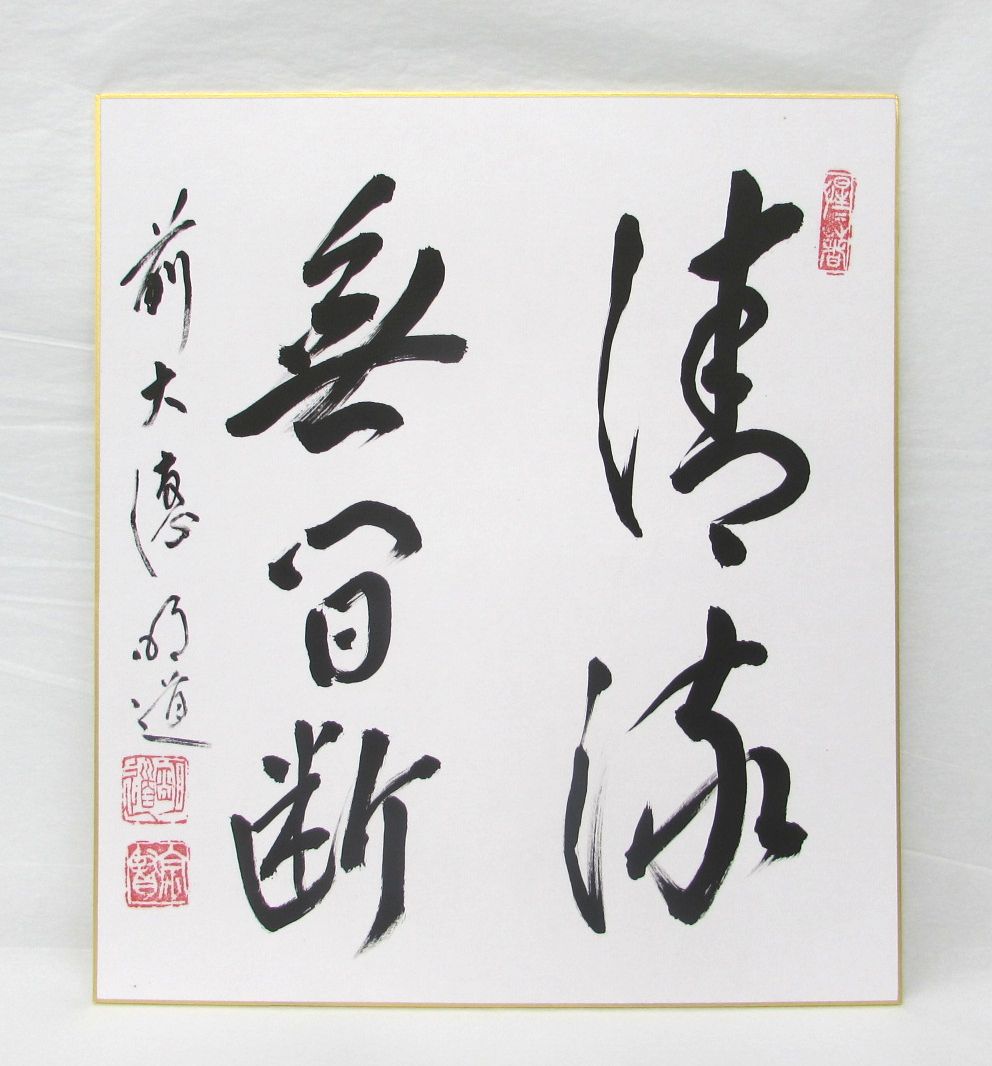 清流
無间断
前大德明道